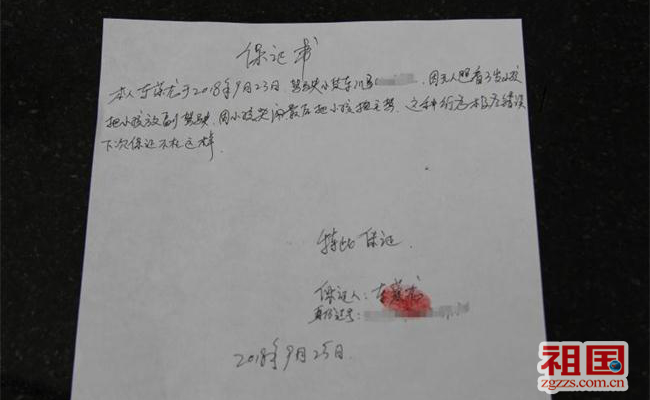 保证书
本人李  于2018年9月23日 驾驶小货车川 因无人照看3岁小孩
把小孩放副驾驶,因小孩哭闹最后把小孩抱主驾,这种行为极度错误
下次保证不在这样
特此保证.
保证人:李
身份证号:
2018年9月25日.
祖国
zgzzs.com.cn